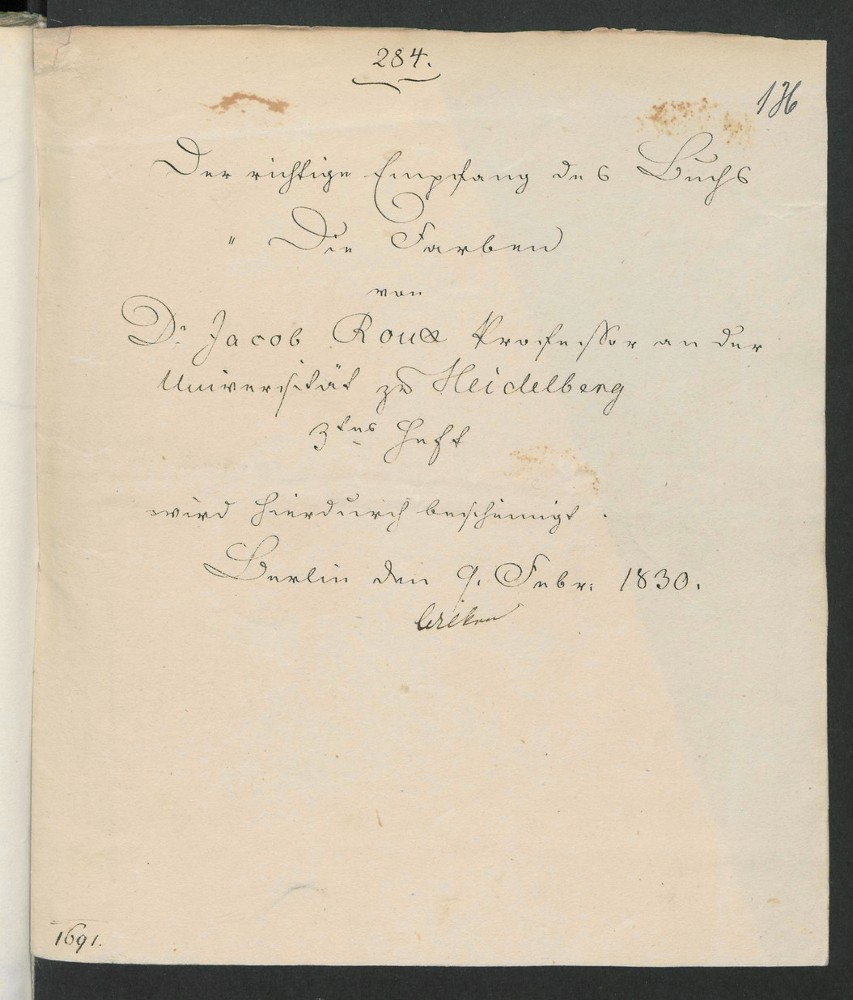 284.
136
Der richtige Empfang des Buchs
" Die Farben
von
Dr. Jacob Roux Professor an der
Universität zu Heidelberg
3tes Heft
wird hierdurch bescheinigt.
Berlin den 9. Febr: 1830.
Wilken
1691.